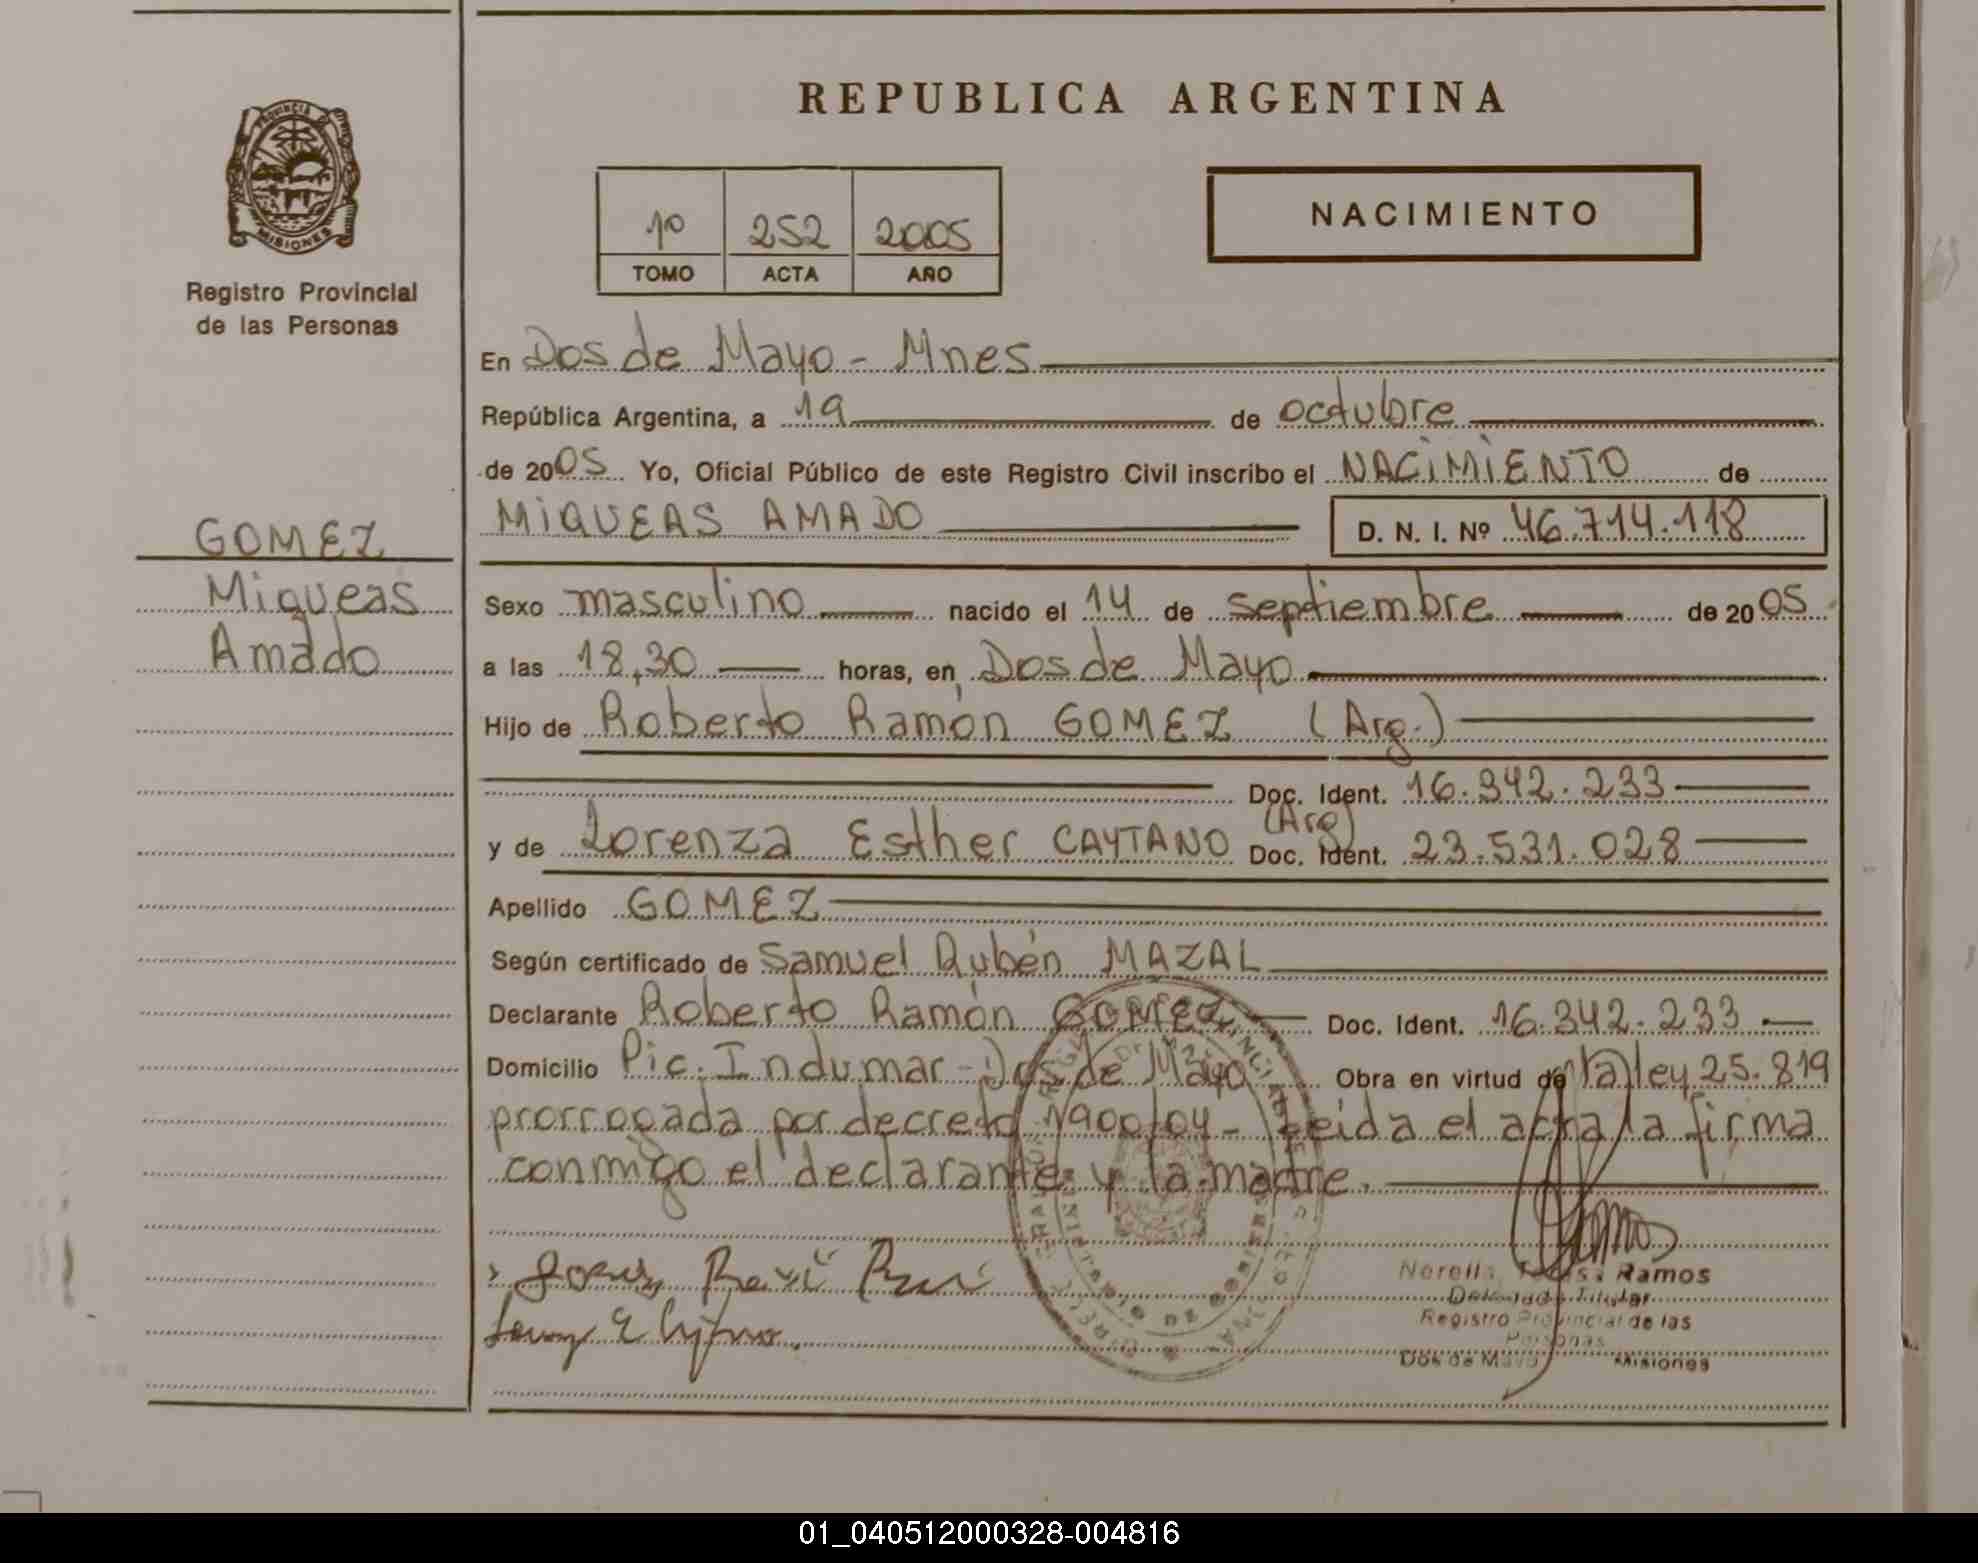 REPUBLICA ARGENTINA
PROVINCIA DE
MISIONES
Registro Provincial
de las Personas
1º 252 2005
TOMO ACTA AÑO
NACIMIENTO
En Dos de Mayo - Mnes
República Argentina, a 19 de octubre
de 2005 Yo, Oficial Público de este Registro Civil inscribo el NACIMIENTO de
MIQUEAS AMADO D. N. I. Nº 46.714.118
GOMEZ
Miqueas
Amado
Sexo masculino nacido el 14 de septiembre de 2005
a las 18,30 horas, en Dos de Mayo
Hijo de Roberto Ramón GOMEZ (Arg.)
Doc. Ident. 16.342.233
(Arg)
y de Lorenza Esther CAYTANO Doc. Ident. 23.531.028
Apellido GOMEZ
Según certificado de Samuel Rubén MAZAL
Declarante Roberto Ramón GOMEZ Doc. Ident. 16.342.233
Domicilio Pic. Indumar - Dos de Mayo Obra en virtud de la ley 25.819
prorrogada por decreto 1900/04 - Leida el acta la firma
conmigo el declarante y la madre.
Ramos
Delegada Titular
Registro Provincial de las
Personas
Dos de Mayo Misiones
01_040512000328-004816